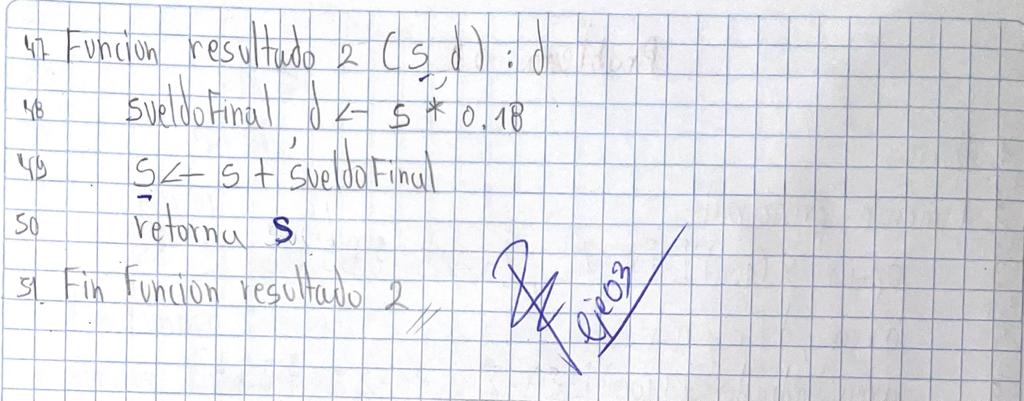 47. Funcion resultado 2 (s, d) : d
48 sueldoFinal, d <- s * 0.18
49 s <- s + sueldoFinal
50 retorna s
51. Fin Funcion resultado 2 //
eje03